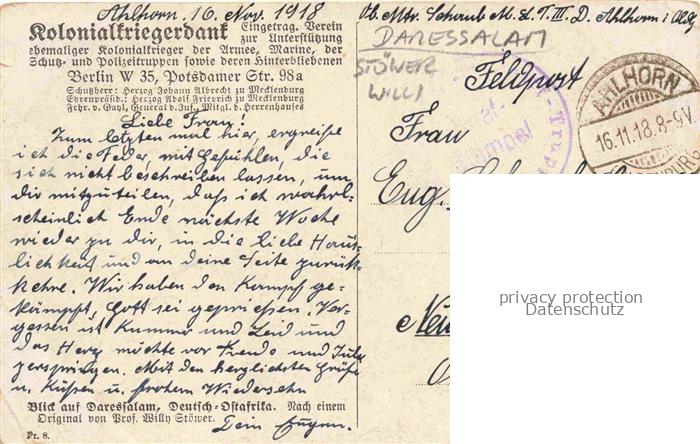 Ahlhorn, 16. Nov. 1918
Kolonialkriegerdank Eingetrag. Verein zur Unterstützung
ehemaliger Kolonialkrieger der Armee, Marine, der
Schutz- und Polizeitruppen sowie deren Hinterbliebenen
Berlin W 35, Potsdamer Str. 98a
Schutzherr: Herzog Johann Albrecht zu Mecklenburg
Ehrenpräsid.: Herzog Adolf Friedrich zu Mecklenburg
Frhr. v. Gayl, General d. Inf., Mitgl. d. Herrenhauses
Liebe Frau!
Zum letzten mal hier, ergreife
ich die Feder, mit Gefühlen, die
sich nicht beschreiben lassen, um
dir mitzuteilen, daß ich wahr-
scheinlich Ende nächste Woche
wieder zu dir, in die liebe Häus-
lichkeit und an deine Seite zurück-
kehre. Wir haben den Kampf ge-
kämpft, Gott sei gepriesen. Ver-
gessen ist Kummer und Leid und
das Herz möchte vor Freude und
zerspringen. Mit den herzlichsten Grüße
u. Küßen u. frohem Wiedersehn
Dein Eugen.
Blick auf Daressalam, Deutsch-Ostafrika. Nach einem
Original von Prof. Willy Stöwer.
Pr. 8.
Ab. Mtr. Schaub M. L. T. III D. Ahlhorn i. Oldg
DARESSALAM
STÖWER
WILLI
Feldpost
AHLHORN
16.11.18.8-9V.
Frau
Eug.
Neu
privacy protection
Datenschutz